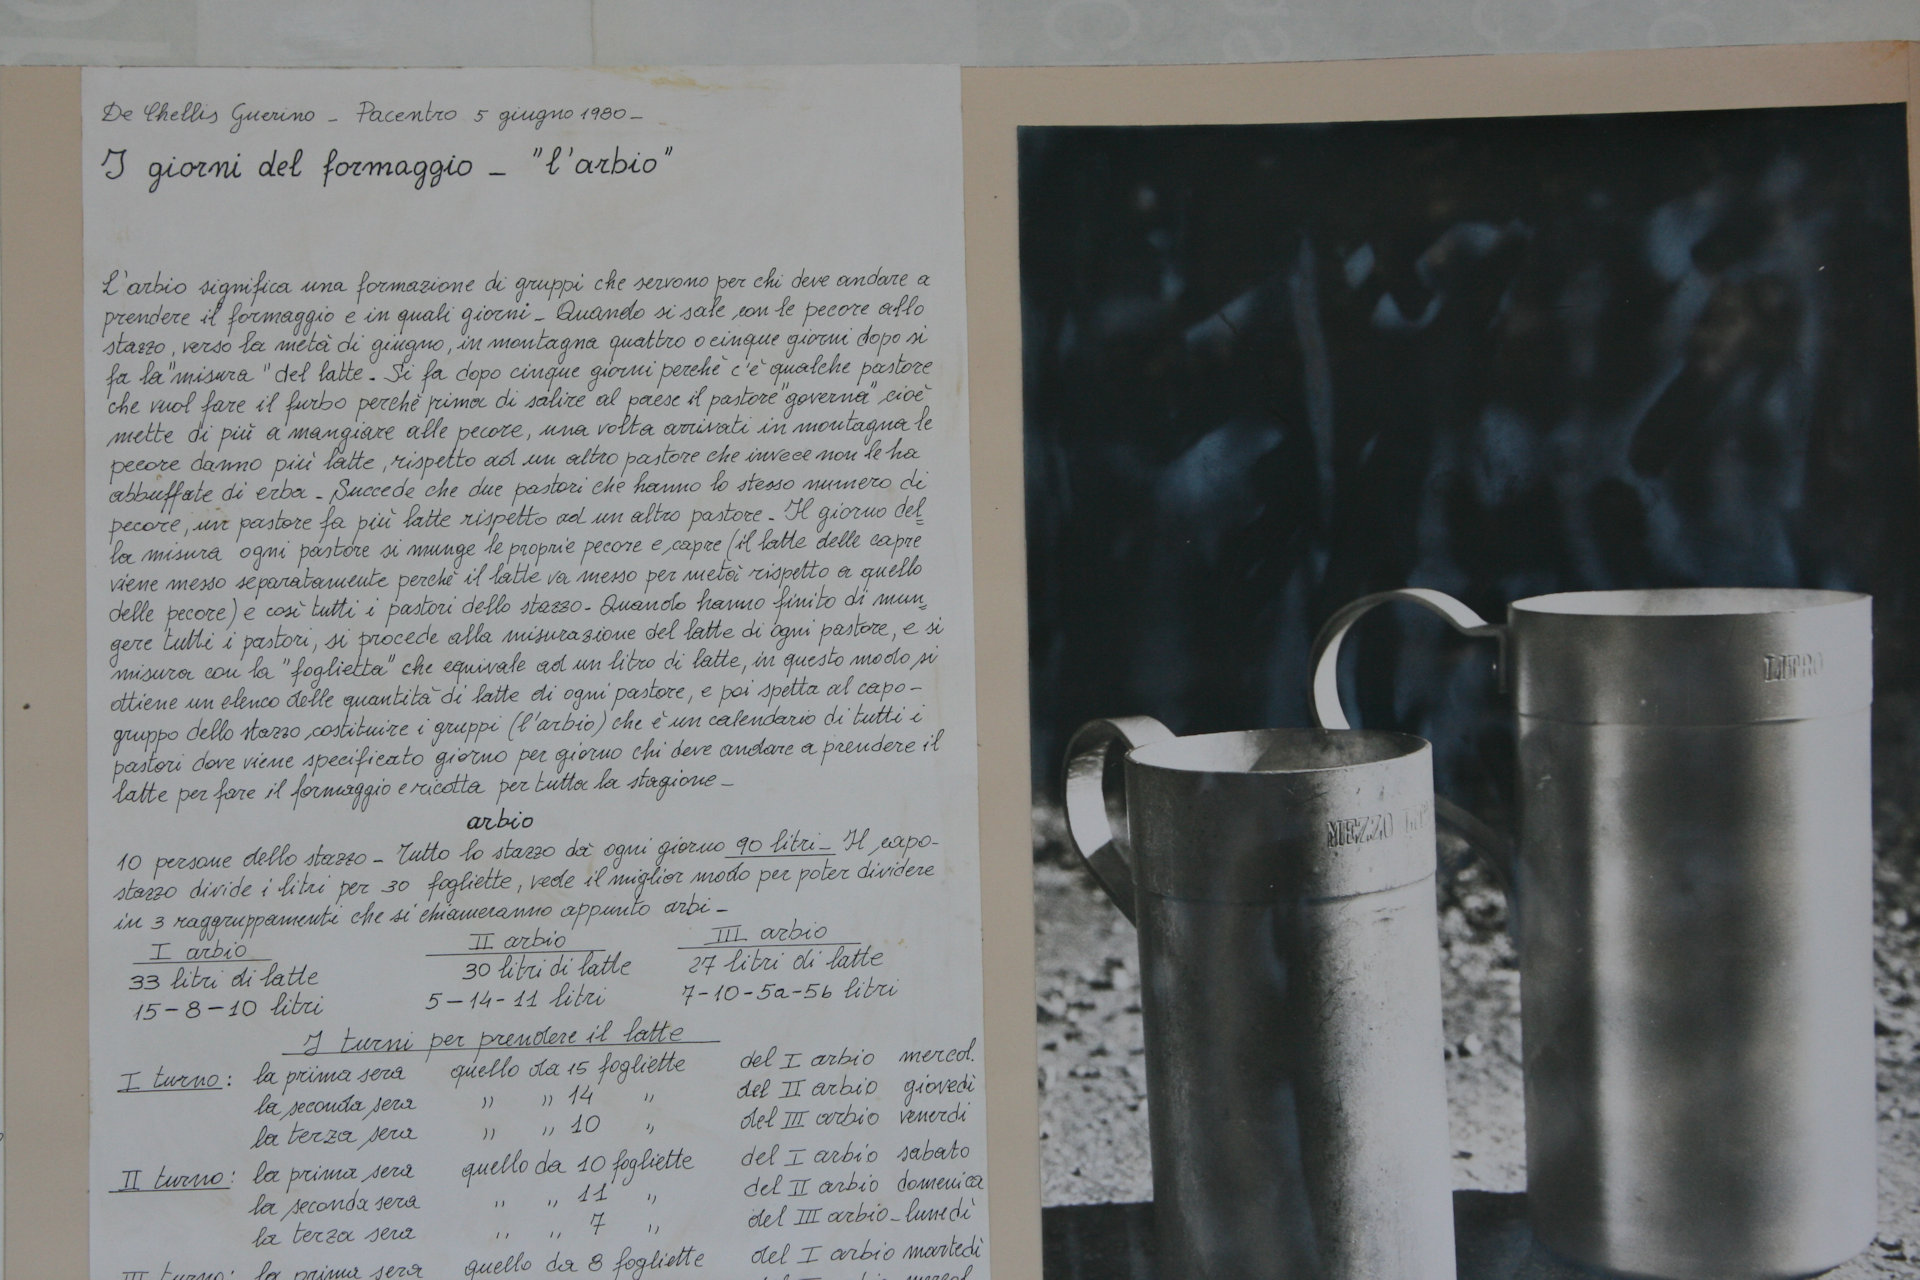 De Chellis Guerino - Pacentro 5 giugno 1980-
I giorni del formaggio - "l'arbio"
L'arbio significa una formazione di gruppi che servono per chi deve andare a
prendere il formaggio e in quali giorni - Quando si sale con le pecore allo
stazzo, verso la metà di giugno, in montagna quattro o cinque giorni dopo si
fa la "misura" del latte - Si fa dopo cinque giorni perchè c'è qualche pastore
che vuol fare il furbo perchè prima di salire al paese il pastore "governa" cioè
mette di più a mangiare alle pecore, una volta arrivati in montagna le
pecore danno più latte, rispetto ad un altro pastore che invece non le ha
abbuffate di erba - Succede che due pastori che hanno lo stesso numero di
pecore, un pastore fa più latte rispetto ad un altro pastore - Il giorno del=
la misura ogni pastore si munge le proprie pecore e capre (il latte delle capre
viene messo separatamente perchè il latte va messo per metà rispetto a quello
delle pecore) e così tutti i pastori dello stazzo - Quando hanno finito di mun=
gere tutti i pastori, si procede alla misurazione del latte di ogni pastore, e si
misura con la "foglietta" che equivale ad un litro di latte, in questo modo si
ottiene un elenco delle quantità di latte di ogni pastore, e poi spetta al capo-
gruppo dello stazzo costituire i gruppi (l'arbio) che è un calendario di tutti i
pastori dove viene specificato giorno per giorno chi deve andare a prendere il
latte per fare il formaggio e ricotta per tutta la stagione -
arbio
10 persone dello stazzo - Tutto lo stazzo dà ogni giorno 90 litri - Il capo-
stazzo divide i litri per 30 fogliette, vede il miglior modo per poter dividere
in 3 raggruppamenti che si chiameranno appunto arbi -
I arbio II arbio III arbio
33 litri di latte 30 litri di latte 27 litri di latte
15-8-10 litri 5-14-11 litri 7-10-5a-5b litri
I turni per prendere il latte
I turno: la prima sera quello da 15 fogliette del I arbio mercol.
la seconda sera " " 14 " del II arbio giovedì
la terza sera " " 10 " del III arbio venerdì
II turno: la prima sera quello da 10 fogliette del I arbio sabato
la seconda sera " " 11 " del II arbio domenica
la terza sera " " 7 " del III arbio - lunedì
III turno: la prima sera quello da 8 fogliette del I arbio martedì
LITRO
MEZZO